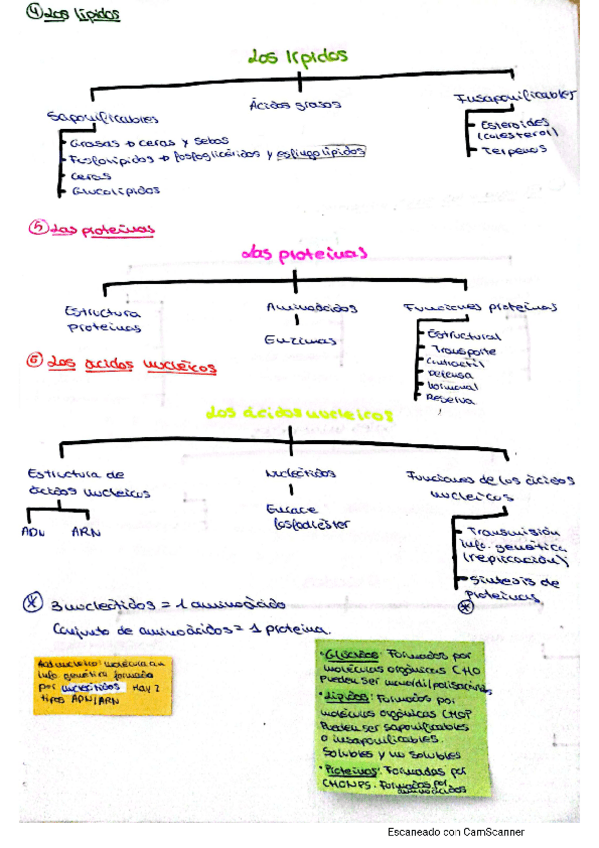 ④ Los lípidos
Los lípidos
Saponificables
Ácidos grasos
Insaponificables
Grasas → ceras y sebos
Fosfolípidos → fosfoglicéridos y esfingolípidos
Ceras
Glucolípidos
Esteroides
(colesterol)
Terpenos
⑤ Las proteínas
Las proteínas
Estructura
proteínas
Aminoácidos
Enzimas
Funciones proteínas
Estructural
Transporte
Contráctil
Defensa
Hormonal
Reserva
⑥ Los ácidos nucleicos
Los ácidos nucleicos
Estructura de
ácidos nucleicos
ADN ARN
Nucleótidos
Enlace
fosfodiéster
Funciones de los ácidos
nucleicos
Transmisión
info. genética
(replicación)
Síntesis de
proteínas.
*
* 3 nucleótidos = 1 aminoácido
Conjunto de aminoácidos = 1 proteína.
Ácid nucleico: molécula con
info genética formada
por nucleótidos Hay 2
tipos ADN/ARN
• Glúcidos: Formados por
moléculas orgánicas CHO
Pueden ser monó/di/polisacáridos
• Lípidos: Formados por
moléculas orgánicas CHOP
Pueden ser saponificables
o insaponificables.
Solubles y no solubles
• Proteínas: Formadas por
CHONPS. Formadas por
aminoácidos
Escaneado con CamScanner